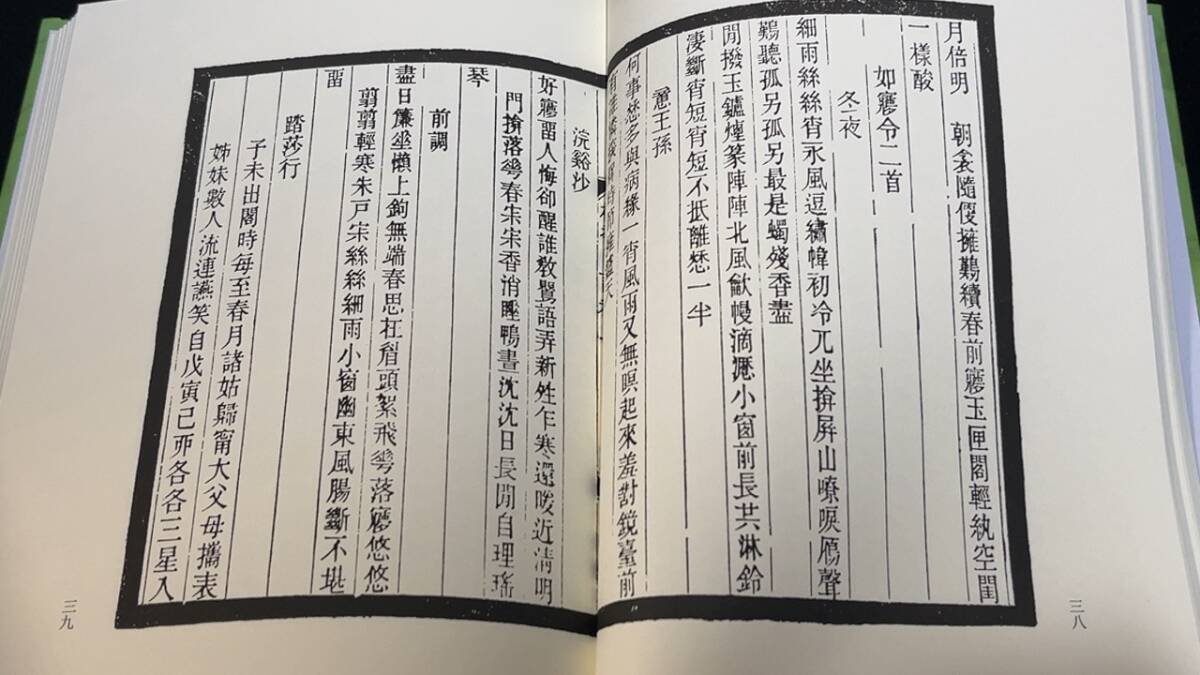 月倍明　朝衾隨便擁難續春前㝱玉匣閣輕紈空閨
一樣酸
如㝱令二首
冬夜
細雨絲絲宵永風逗繡幃初冷兀坐揜屏山嘹唳鴈聲
難聽孤另孤另最是蠋殘香盡
閒撥玉鑪煙篆陣陣北風歙幔滴瀝小窗前長共淋鈴
淒斷宵短宵短不抵離愁一半
憶王孫
何事愁多與病緣一宵風雨又無暝起來羞對鏡臺前
浣谿沙
好㝱畱人悔卻醒誰教鸎語弄新姓乍寒還暖近清明
門揜落蕚春宋宋香消睡鴨晝沈沈日長閒自理瑤
琴
前調
盡日簾垂懶上鉤無端春思在眉頭絮飛蕚落㝱悠悠
翦翦輕寒朱戶宋絲絲細雨小窗幽東風腸斷不堪
畱
踏莎行
子未出閣時每至春月諸姑歸甯大父母攜表
姊妹數人流連讌笑自戊寅己丣各各三星入
三八
三九